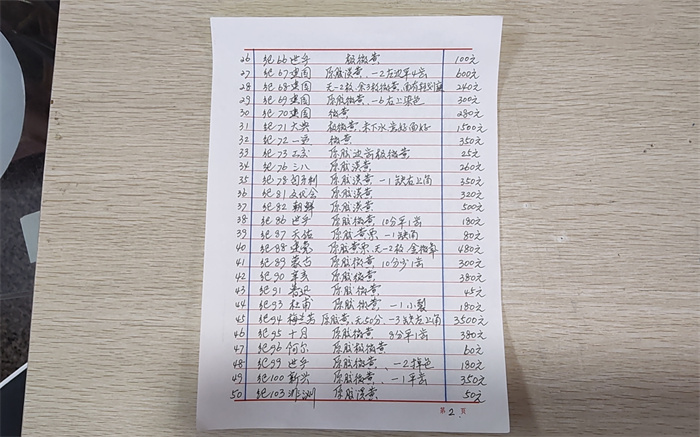 26 纪66世乒 极微黄 100元
27 纪67建国 原胶淡黄、一2左边军4齿 600元
28 纪68建国 无一2枚,余3枚微黄, 240元
29 纪69建国 原胶微黄、一6右上染色 300元
30 纪70建国 微黄 280元
31 纪71大典 极微黄、未下水 1500元
32 纪72一运 微黄 350元
33 纪73 原胶边齿极微黄 25元
34 纪76三八 原胶淡黄 260元
35 纪78匈牙利 原胶淡黄 一1缺右上角 350元
36 纪81文代会 原胶淡黄 320元
37 纪82朝鲜 原胶淡黄 500元
38 纪86世乒 原胶微黄 10分军1齿 180元
39 纪87天佑 原胶黄、一1缺角 80元
40 纪88建党 原胶黄、无一2枚, 480元
41 纪89蒙古 原胶微黄 10分少1齿 300元
42 纪90辛亥 原胶微黄 380元
43 纪91鲁迅 原胶微黄 45元
44 纪93杜甫 原胶微黄 一1小裂 180元
45 纪94梅兰芳 原胶黄、无50分、一3缺左上角 3500元
46 纪95十月 原胶微黄 8分军1齿 380元
47 纪96阿尔 原胶极微黄 60元
48 纪99世乒 原胶微黄、一2掉色 180元
49 纪100新兴 原胶微黄、一1军齿 350元
50 纪103非洲 原胶淡黄 50元
第 2 页